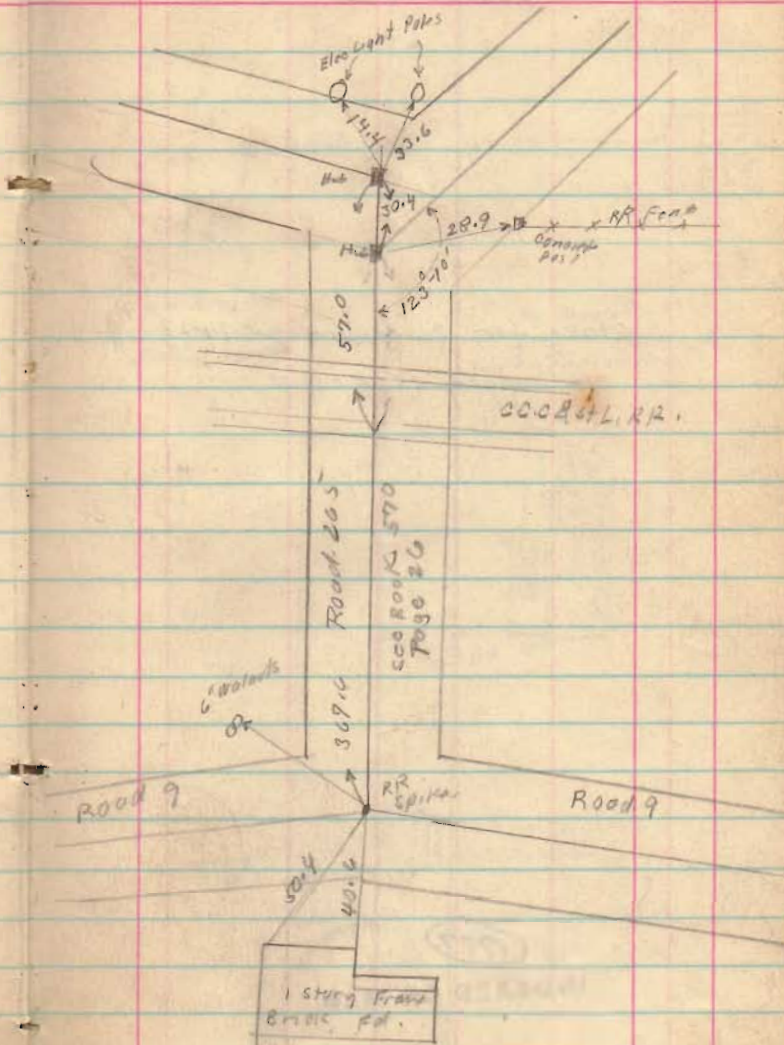 Elec Light Poles
14.4
33.6
Hub
30.4
28.9
RR Fence
Concrete
Post
Hub
123°-10'
57.0
C.C.C & St L. RR.
Road 265
See Book 570
Page 26
6" Walnuts
Road 9
RR
Spike
Road 9
50.4
40.6
1 Story Frame
Brick Fd.
INDEXED